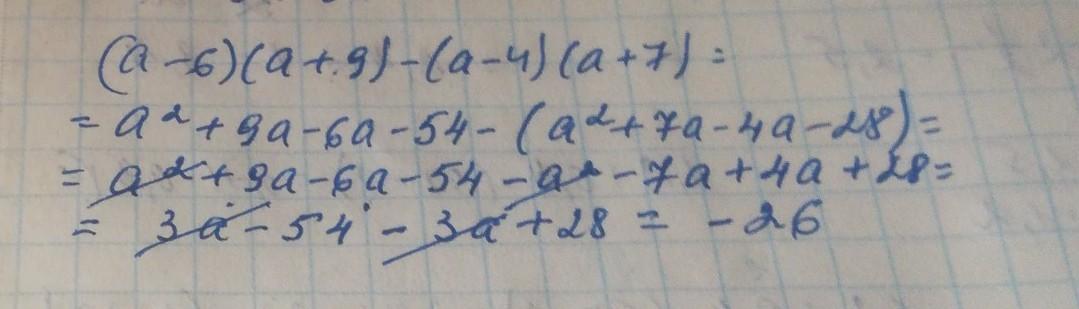 (a-6)(a+9)-(a-4)(a+7)=
=a²+9a-6a-54-(a²+7a-4a-28)=
=a²+9a-6a-54-a²-7a+4a+28=
= 3a-54-3a+28 = -26